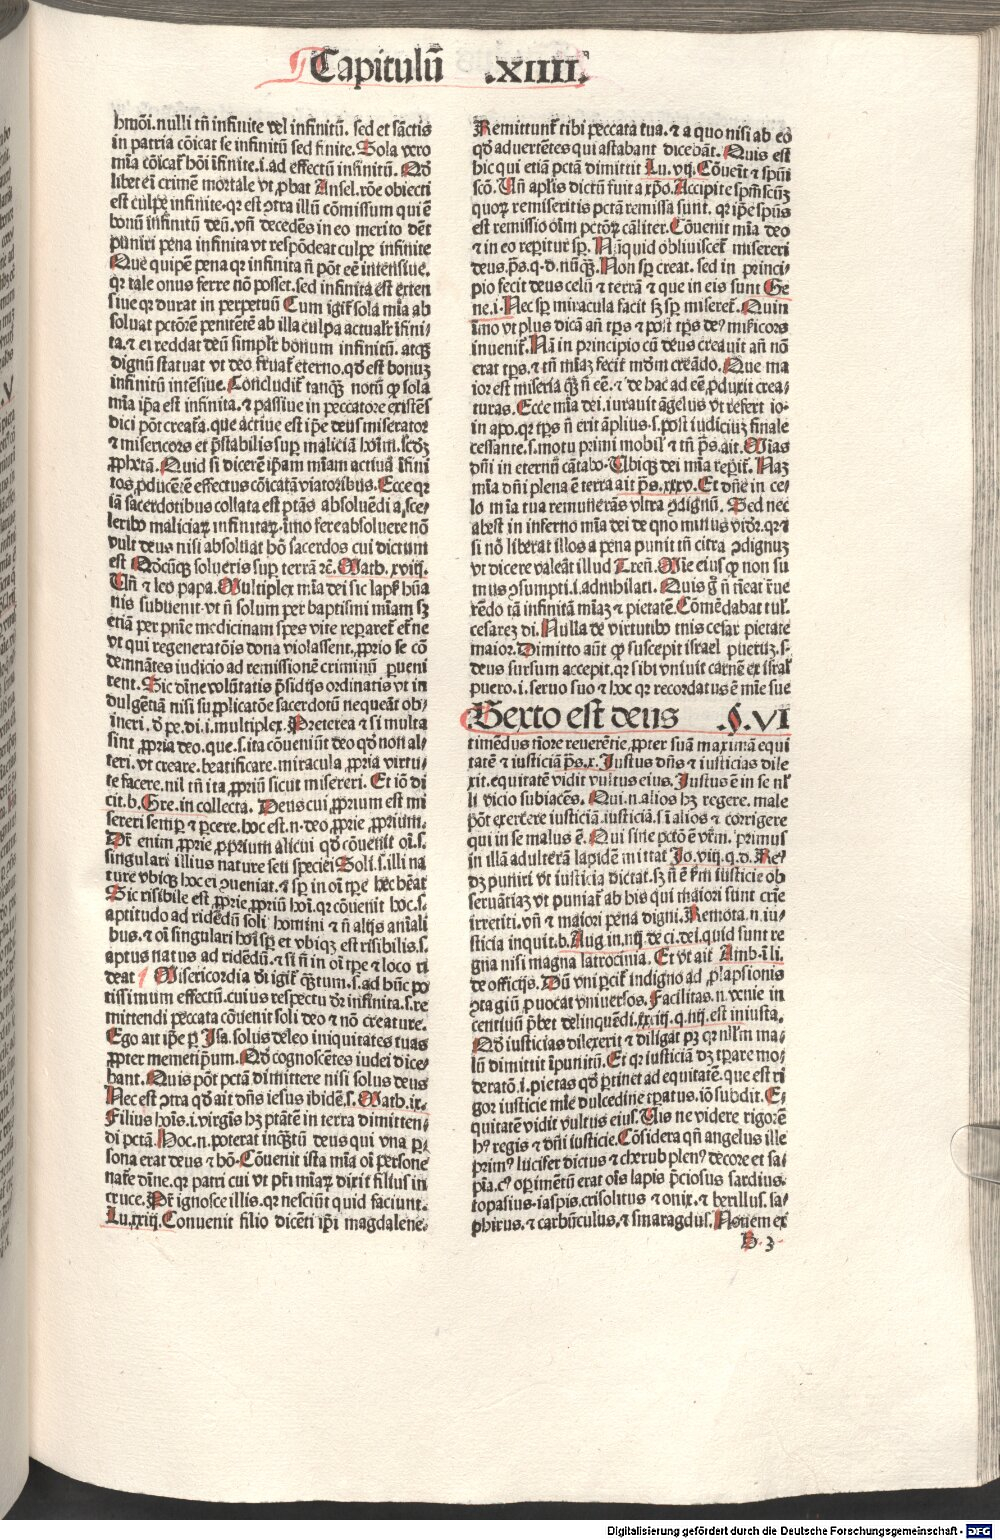 Capitulū .XIIII.
hmōi. nulli tñ infinite vel infinitū. sed et sāctis
in patria cōicat se infinitū sed finite. Sola vero
mīa cōicat᷑ hōi īfinite .i. ad effectū infinitū. Qd̄
libet eī crimē mortale vt ꝓbat Ansel. rōe obiecti
est culpe infinite. qr est ꝯtra illū cōmissum qui ē
bonū infinitū deū. vñ decedēs in eo merito dēt
puniri pena infinita vt respōdeat culpe infinite
Que quipē pena qr infinita ñ pōt eē intensiue.
qr tale onus ferre nō posset. sed infinita est exten
siue qr durat in perpetuū Cum igit᷑ sola mīa ab
soluat pctōrē penitētē ab illa culpa actualr̄ īfini/
ta. ⁊ ei reddat deū simplr̄ bonum infinitū. atqꝫ
dignū statuat vt deo fruat᷑ eterno. qd̄ est bonuꝫ
infinitū intēsiue. Concludit᷑ tanqꝫ notū ꝙ sola
mīa ip̄a est infinita. ⁊ passiue in peccatore existēs
dici pōt creat᷑a. que actiue est ip̄e deus miserator
⁊ misericors et p̄stabilis suꝑ maliciā hoīm. scd̄ꝫ
ꝓphetā. Quid si dicerē ip̄am mīam actiuā īfini
tos ꝓducē̄e effectus cōicatā viatoribus. Ecce qr
iā sacerdotibus collata est ptās absoluēdi a sce/
leribꝰ maliciaꝝ infinitaꝝ. īmo fere absoluere nō
vult deus nisi absoluat hō sacerdos cui dictum
est Qd̄cūqꝫ solueris suꝑ terrā ⁊c. Math. xviij.
Uñ ⁊ leo papa. Multiplex mīa dei sic lapſ᷑ hūa
nis subuenit. vt ñ solum per baptismi mīam sꝫ
etiā per pn̄ie medicinam spes vite reparet᷑ et᷑ne
vt qui regeneratōis dona violassent. ꝓprio se cō
demnātes iudicio ad remissionē criminū perueni
rent. Sic dīne volūtatis p̄sidijs ordinatis vt in
dulgētiā nisi supplicatōe sacerdotū nequeāt ob/
ineri. d̄ pe. di. i. multiplex. Preterea ⁊ si multa
sint ꝓpria deo. que .s. ita cōueniūt deo qd̄ non al/
teri. vt creare. beatificare. miracula ꝓpria virtu/
te facere. nil tñ ita ꝓpriū sicut misereri. Et iō di
cit. b. Gre. in collecta. Deus cui ꝓprium est mi
sereri semꝑ ⁊ ꝑcere. hoc est .n. deo ꝓprie ꝓprium.
Dr̄ enim ꝓprie ꝓprium alicui qd̄ cōuenit oī .s.
singulari illius nature seu speciei Soli .s. illi na
ture vbiqꝫ hoc ei ꝯueniat. ⁊ sꝑ in oī tꝑe hec hēat
Sic risibile est ꝓprie ꝓpriū hoī. qr cōuenit hoc .s.
aptitudo ad ridēdū soli homini ⁊ ñ alijs aīali
bus. ⁊ oī singulari hoī sꝑ et vbiqꝫ est risibilis .s.
aptus natus ad ridēdū. ⁊ si ñ in oī tꝑe ⁊ loco ri
deat ¶ Misericordia dei igit᷑ qꝫtum .s. ad hūc po
tissimum effectū. cuius respectu dr̄ infinita .s. re
mittendi peccata cōuenit soli deo ⁊ nō creature.
Ego ait ip̄e ꝑ Isa. solus deleo iniquitates tuas
ꝓpter memetip̄um. Qd̄ cognoscētes iudei dice/
bant. Quis pōt pctā dimittere nisi solus deus
Nec est ꝯtra qd̄ ait dn̄s iesus ibidē .s. Math. ix.
Filius hoīs .i. virgīs hꝫ ptātē in terra dimitten/
di pctā. Hoc .n. poterat inqꝫtū deus qui vna ꝑ/
sona erat deus ⁊ hō. Cōuenit ista mīa oī persone
nat᷑e dīne. qr patri cui vt pr̄i mīaꝫ dixit filius in
cruce. Pr̄ ignosce illis. qr nesciūt quid faciunt.
Lu. xxiij. Conuenit filio dicēti ip̄i magdalene.
Remittunt᷑ tibi peccata tua. ⁊ a quo nisi ab eo
qd̄ aduertētes qui astabant dicebāt. Quis est
hic qui etiā pctā dimittit Lu. vij. Cōuēit ⁊ spūi
scō. Uñ aplis dictū fuit a xp̄o. Accipite spm̄ scūꝫ
quoꝝ remiseritis pctā remissa sunt. qr ip̄e spūs
est remissio oīm pctōꝝ cāliter. Cōuenit mīa deo
⁊ in eo reperitur sꝑ. Nūquid obliuiscet᷑ misereri
deus. p̄s. q. d. nūqꝫ. Non sꝑ creat. sed in princi/
pio fecit deus celū ⁊ terrā ⁊ que in eis sunt Ge
ne. i. Nec sꝑ miracula facit sꝫ sꝑ miseret᷑. Quin
īmo vt plus dicā añ tꝑs ⁊ post tꝑs deꝰ mīs̄icors
inuenit᷑. Nā in principio cū deus creauit añ nō
erat tꝑs. ⁊ tñ mīaꝫ fecit mōm creādo. Que ma
ior est miseria qꝫ ñ eē. ⁊ de hac ad eē ꝓduxit crea/
turas. Ecce mīa dei. iurauit āgelus vt refert io/
in apo. qr tꝑs ñ erit āplius .s. post iudiciuꝫ finale
cessante .s. motu primi mobil᷑ ⁊ tñ p̄s. ait. Mīas
dn̄i in eternū cātabo. Ubiqꝫ dei mīa reꝑit᷑. Naꝫ
mīa dn̄i plena ē terra ait p̄s. xxxv. Et dn̄e in ce/
lo mīa tua remunerās vltra ꝯdignū. Sed nec
abest in inferno mīa dei de quo minus vidr̄. qr ⁊
si nō liberat illos a pena punit tñ citra ꝯdignuꝫ
vt dicere valeāt illud Tren̄. Mīe eius ꝙ non su
mus ꝯsumpti .i. adnihilati. Quis ḡ ñ īeat r̄ue
rēdo tā infinitā mīaꝫ ⁊ pietatē. Cōmēdabat tul᷑.
cesareꝫ di. Nulla de virtutibꝰ tuis cesar pietate
maior. Dimitto aūt ꝙ suscepit israel pueruꝫ .s.
deus sursum accepit. qr sibi vniuit carnē ex isral᷑
puero .i. seruo suo ⁊ hoc qr recordatus ē mīe sue
Sexto est deus .§. VI
timēdus tīore reuerētie ꝓpter suā maximā equi
tatē ⁊ iusticiā p̄s. x. Iustus dn̄s ⁊ iusticias dile
xit. equitatē vidit vultus eius. Iustus ē in se nl᷑
li vicio subiacēs. Qui .n. alios hꝫ regere. male
pōt exercere iusticiā. iusticia .s. ī alios ⁊ corrigere
qui in se malus ē. Qui sine pctō ē vr̄m. primus
in illā adulterā lapidē mittat Jo. viij. q. d. Re/
dꝫ puniri vt iusticia dictat. sꝫ ñ ē km̄ iusticie ob
seruātiaꝫ vt puniat᷑ ab his qui maiori sunt crīe
irretiti. vñ ⁊ maiori pena digni. Remota .n. iu/
sticia inquit. b. Aug in. iiij de ci. dei. quid sunt re
gna nisi magna latrocinia. Et vt ait Amb. i li.
de officijs. Dū vni ꝑcit᷑ indigno ad ꝓlapsionis
ꝯtagiū ꝓuocat᷑ vniuersos. Facilitas .n. venie in
centiuū p̄bet delinquēdi. xxiij. q. iiij. est iniusta.
Qd̄ iusticias dilexerit ⁊ diligat pꝫ qr nllm̄ ma/
lū dimittit īpunitū. Et qr iusticiā dꝫ tꝑare mo/
deratō .i. pietas qd̄ ꝑtinet ad equitatē. que est ri
gor iusticie mīe dulcedine tꝑatus. iō subdit. E/
quitatē vidit vultus eius. Uis ne videre rigorē
hꝰ regis ⁊ dn̄i iusticie. Cōsidera qñ angelus ille
primꝰ lucifer dictus ⁊ cherub plenꝰ decore et sa/
pīa. cꝰ oꝑimētū erat oīs lapis p̄ciosus sardius.
topasius. iaspis. crisolitus ⁊ onix. ⁊ berillus. sa/
phirus. ⁊ carbūculus. ⁊ smaragdus. Nouem ex
b 3
Digitalisierung gefördert durch die Deutsche Forschungsgemeinschaft - DFG